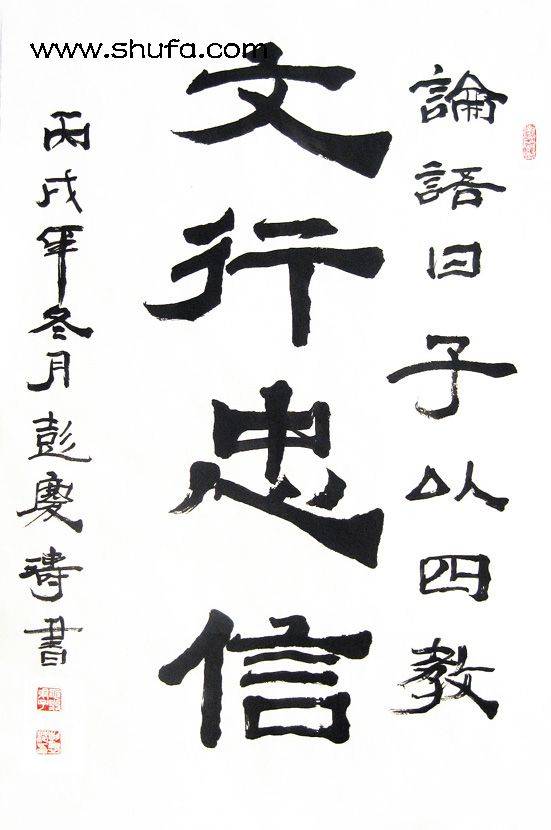 www.shufa.com
論語曰子以四教
文行忠信
丙戌年冬月彭慶濤書